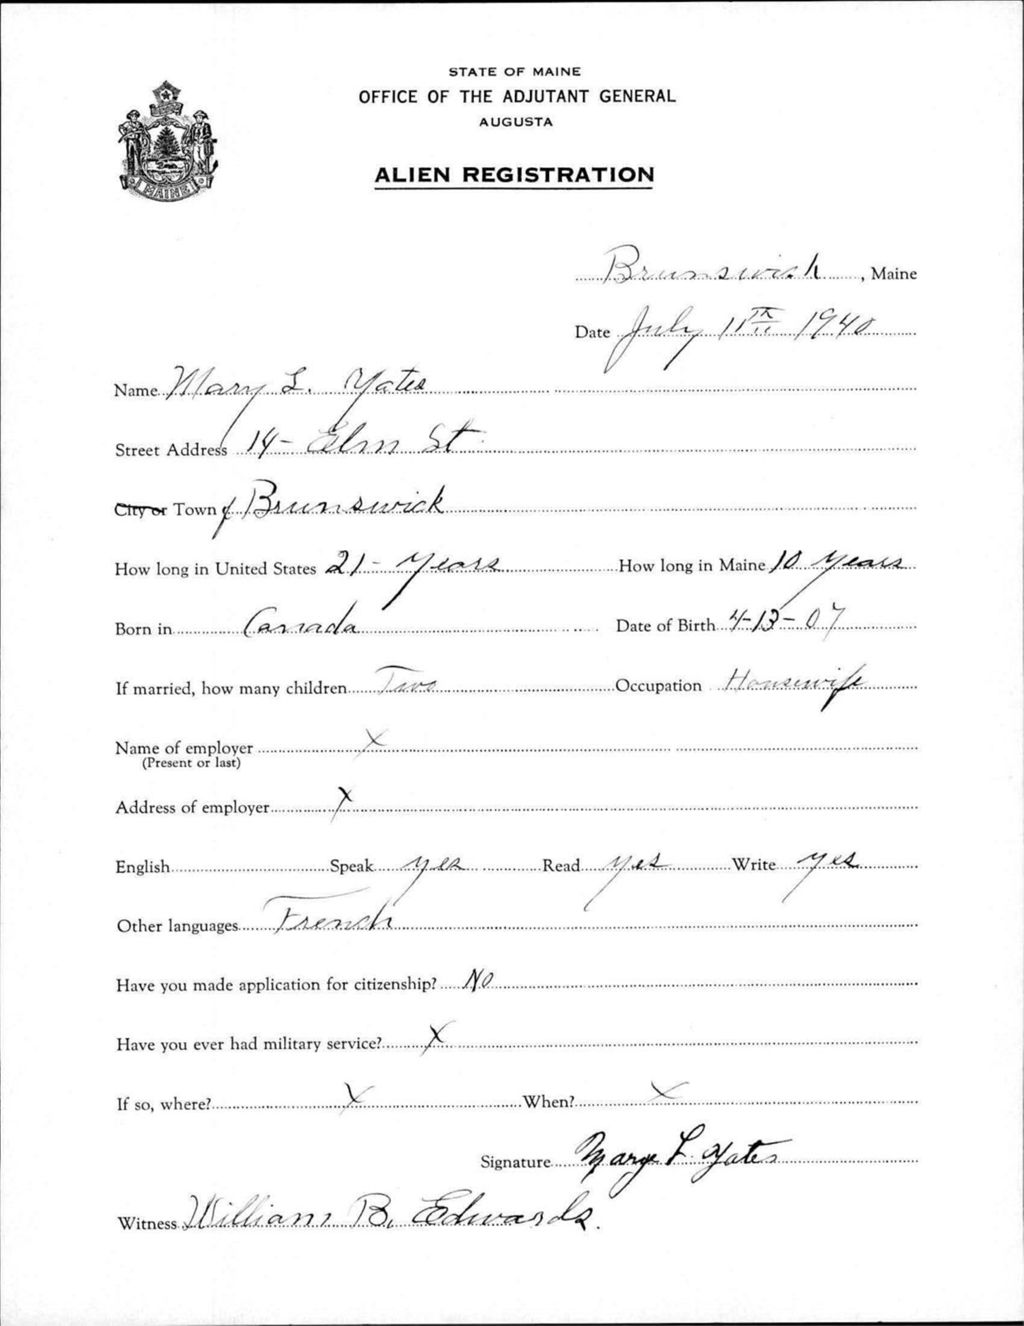 STATE OF MAINE
OFFICE OF THE ADJUTANT GENERAL
AUGUSTA
ALIEN REGISTRATION
MAINE
Brunswick, Maine
Date July 11TH 1940
Name Mary L. Yates
Street Address 14- Elm St.
City or Town of Brunswick
How long in United States 21- Years How long in Maine 10 Years
Born in Canada Date of Birth 4-13-07
If married, how many children Two Occupation Housewife
Name of employer X
(Present or last)
Address of employer X
English Speak yes Read yes Write yes
Other languages French
Have you made application for citizenship? No
Have you ever had military service? X
If so, where? X When? X
Signature Marye L. Yates
Witness William B. Edwards.